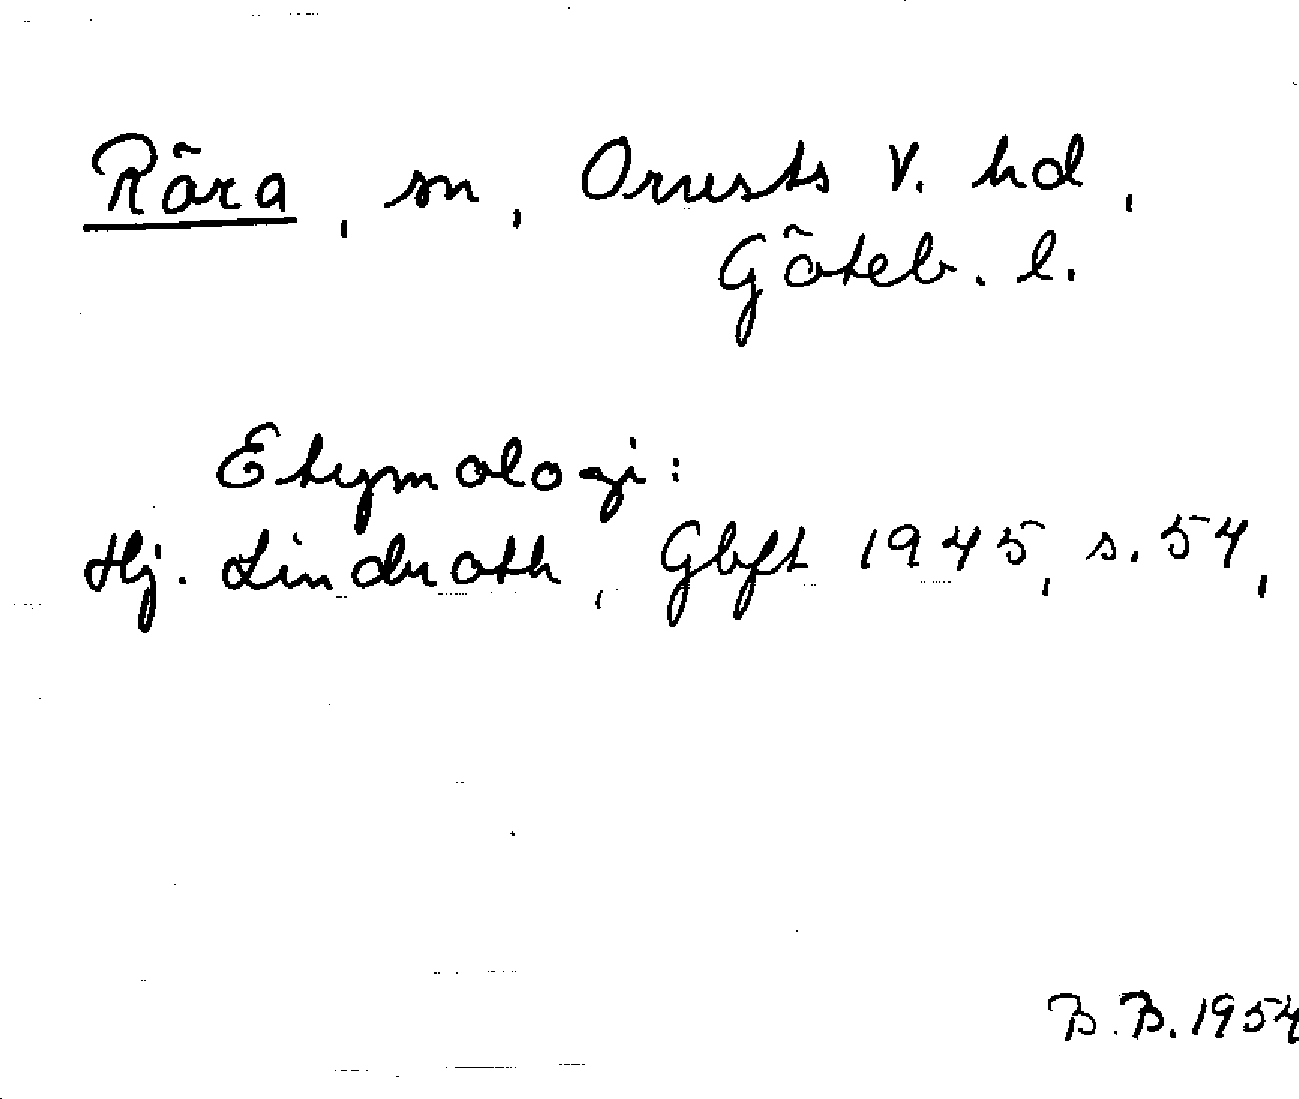 Röra, sn, Orusts V. hd,
Göteb. l.
Etymologi:
Hj. Lindroth, Gbft 1945, s. 54,
B.B. 1954